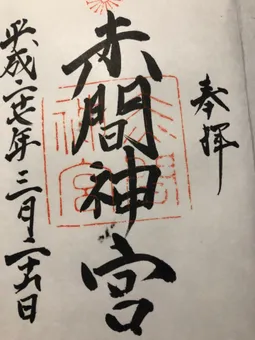 奉拝
赤間神宮
赤間神宮
平成二十七年三月二十六日